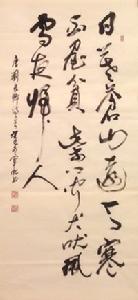 日暮蒼山遠天寒
白屋貧柴門聞犬吠風
雪夜歸人
唐劉長卿詩